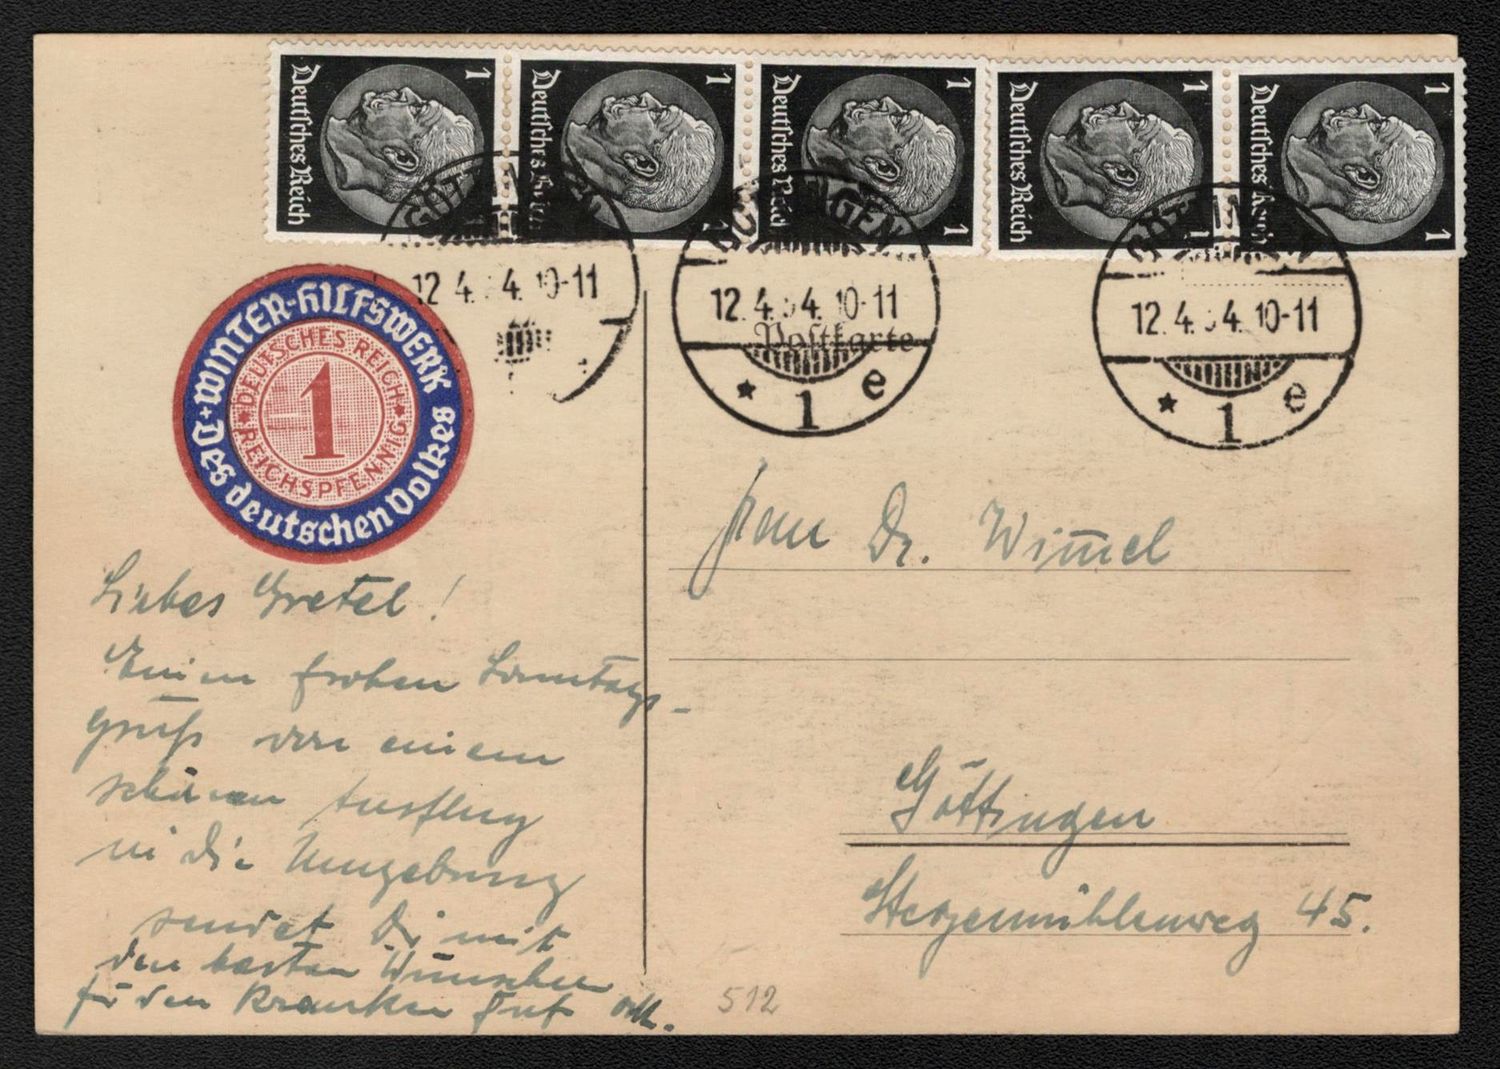 Deutsches Reich 1 1
Deutsches Reich 1 1
Deutsches Reich 1 1
Deutsches Reich 1 1
Deutsches Reich 1 1
GÖTTINGEN
12.4.34.10-11
GÖTTINGEN
12.4.34.10-11
* 1 e
GÖTTINGEN
12.4.34.10-11
* 1 e
WINTER-HILFSWERK
Des deutschen Volkes
DEUTSCHES REICH
1
REICHSPFENNIG
Postkarte
Liebes Gretel!
Einen frohen Sonntags-
gruß von einem
schönen Ausflug
in die Umgebung
sendet Dir mit
den besten Wünschen
für den kranken Fuß
Frau Dr. Wim̄el
Göttingen
Herzermühlenweg 45.
512